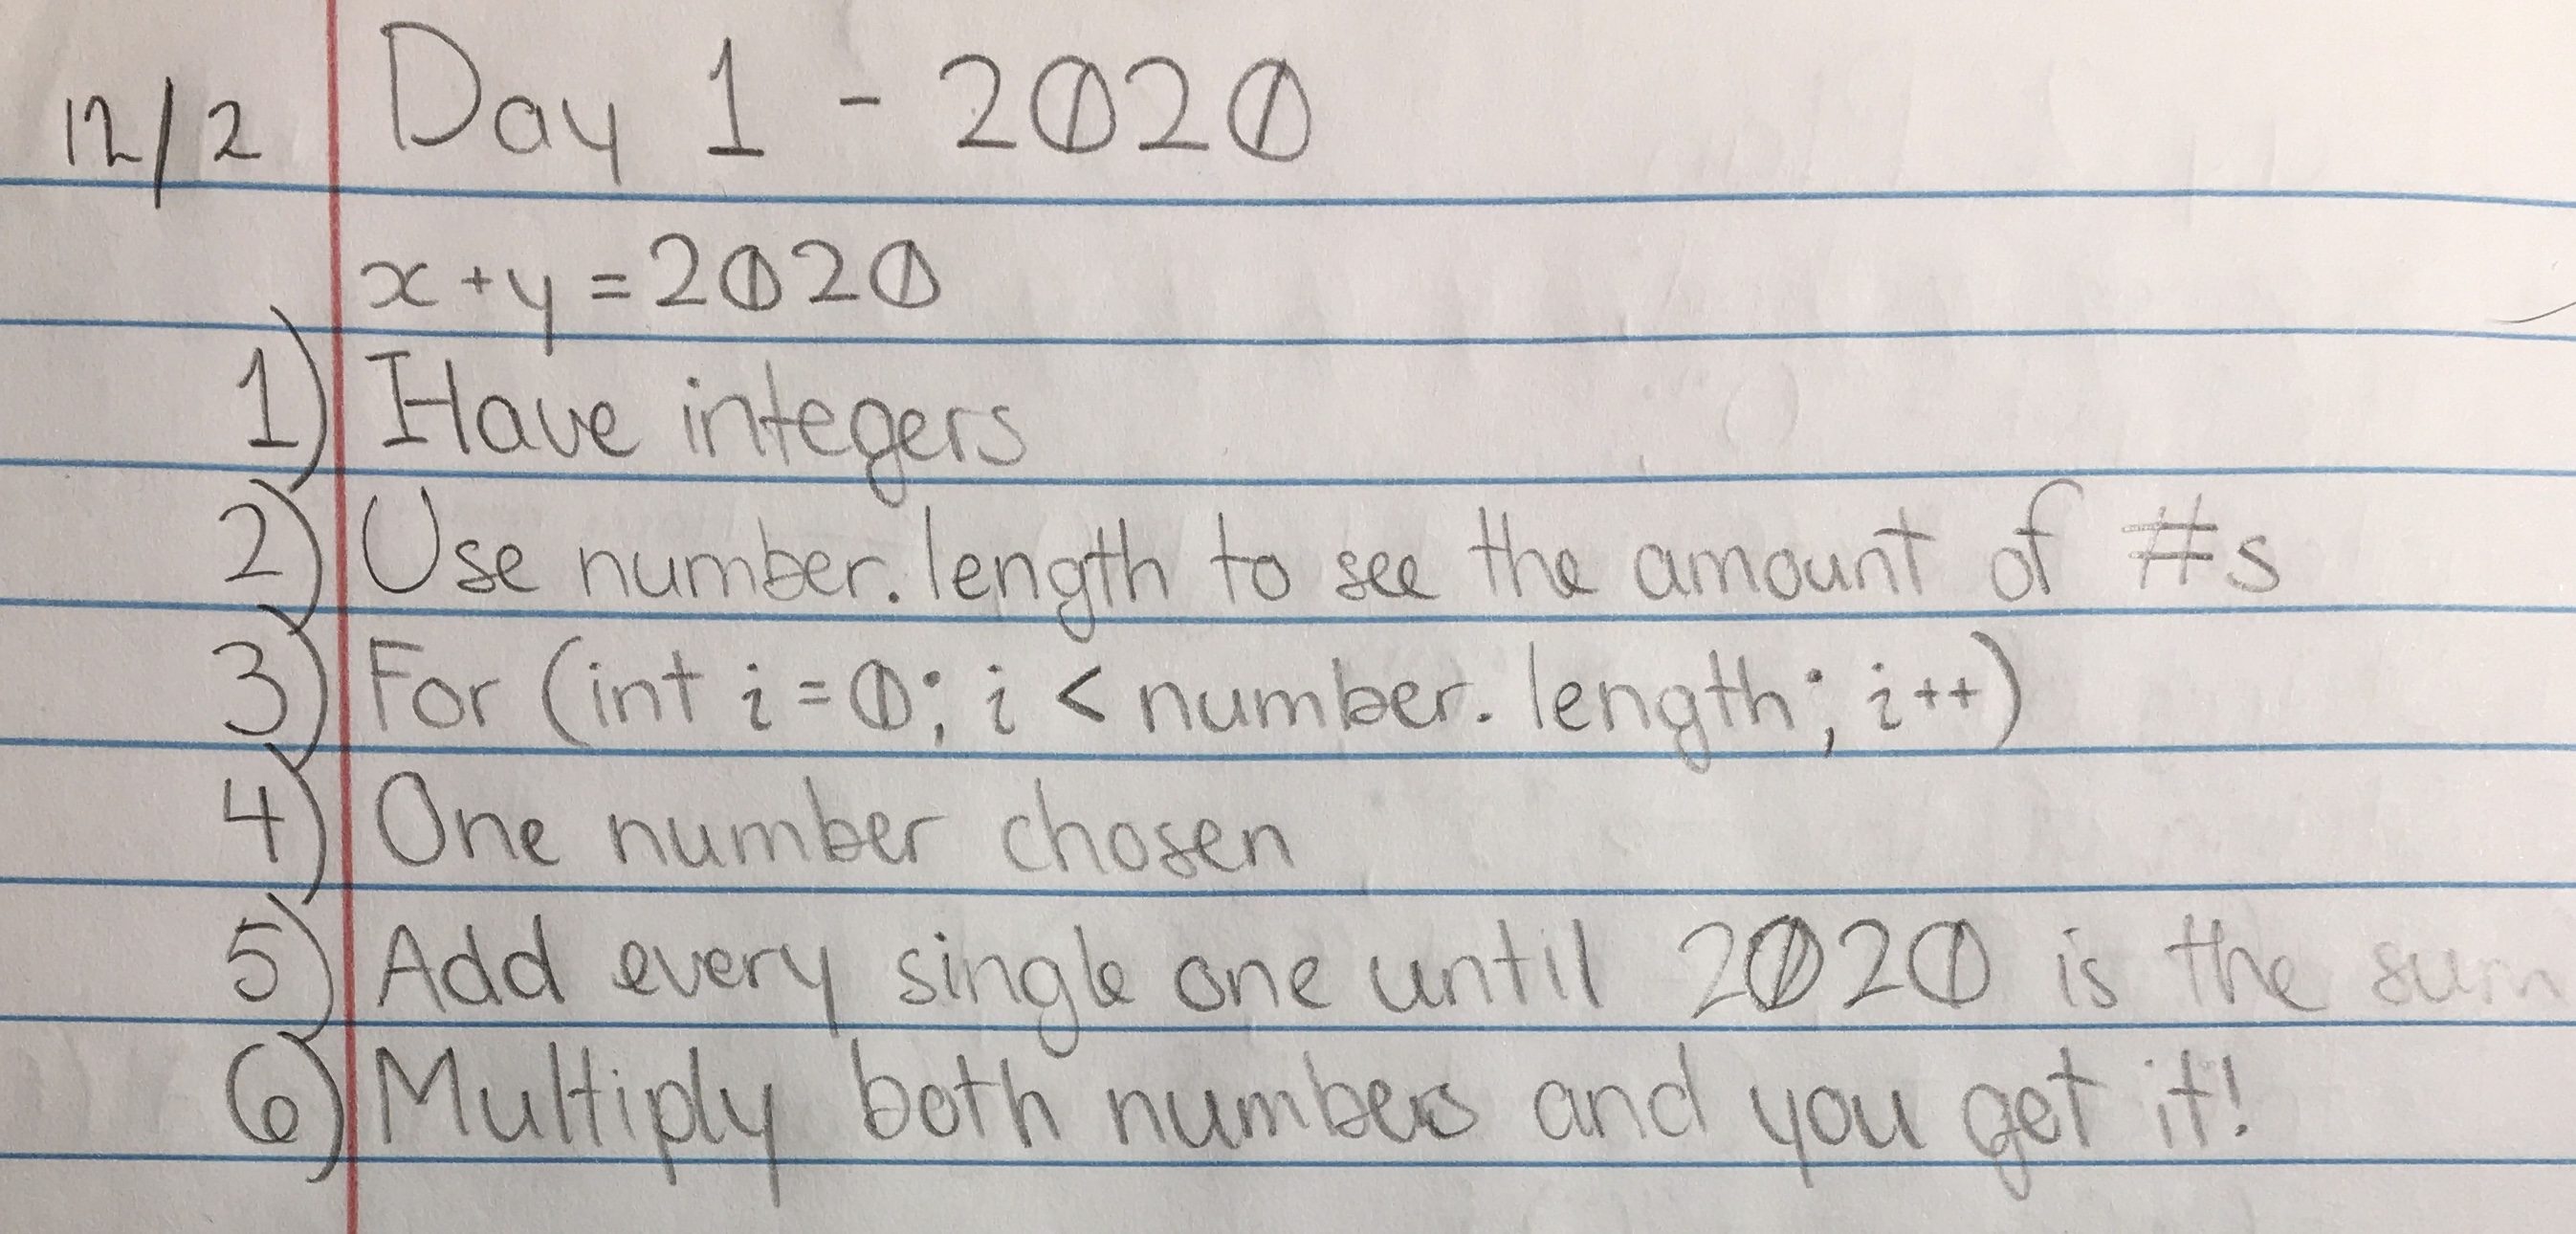 12/2 Day 1 - 2020
x + y = 2020
1) Have integers
2) Use number.length to see the amount of #s
3) For (int i = 0; i < number.length; i++)
4) One number chosen
5) Add every single one until 2020 is the sum
6) Multiply both numbers and you get it!